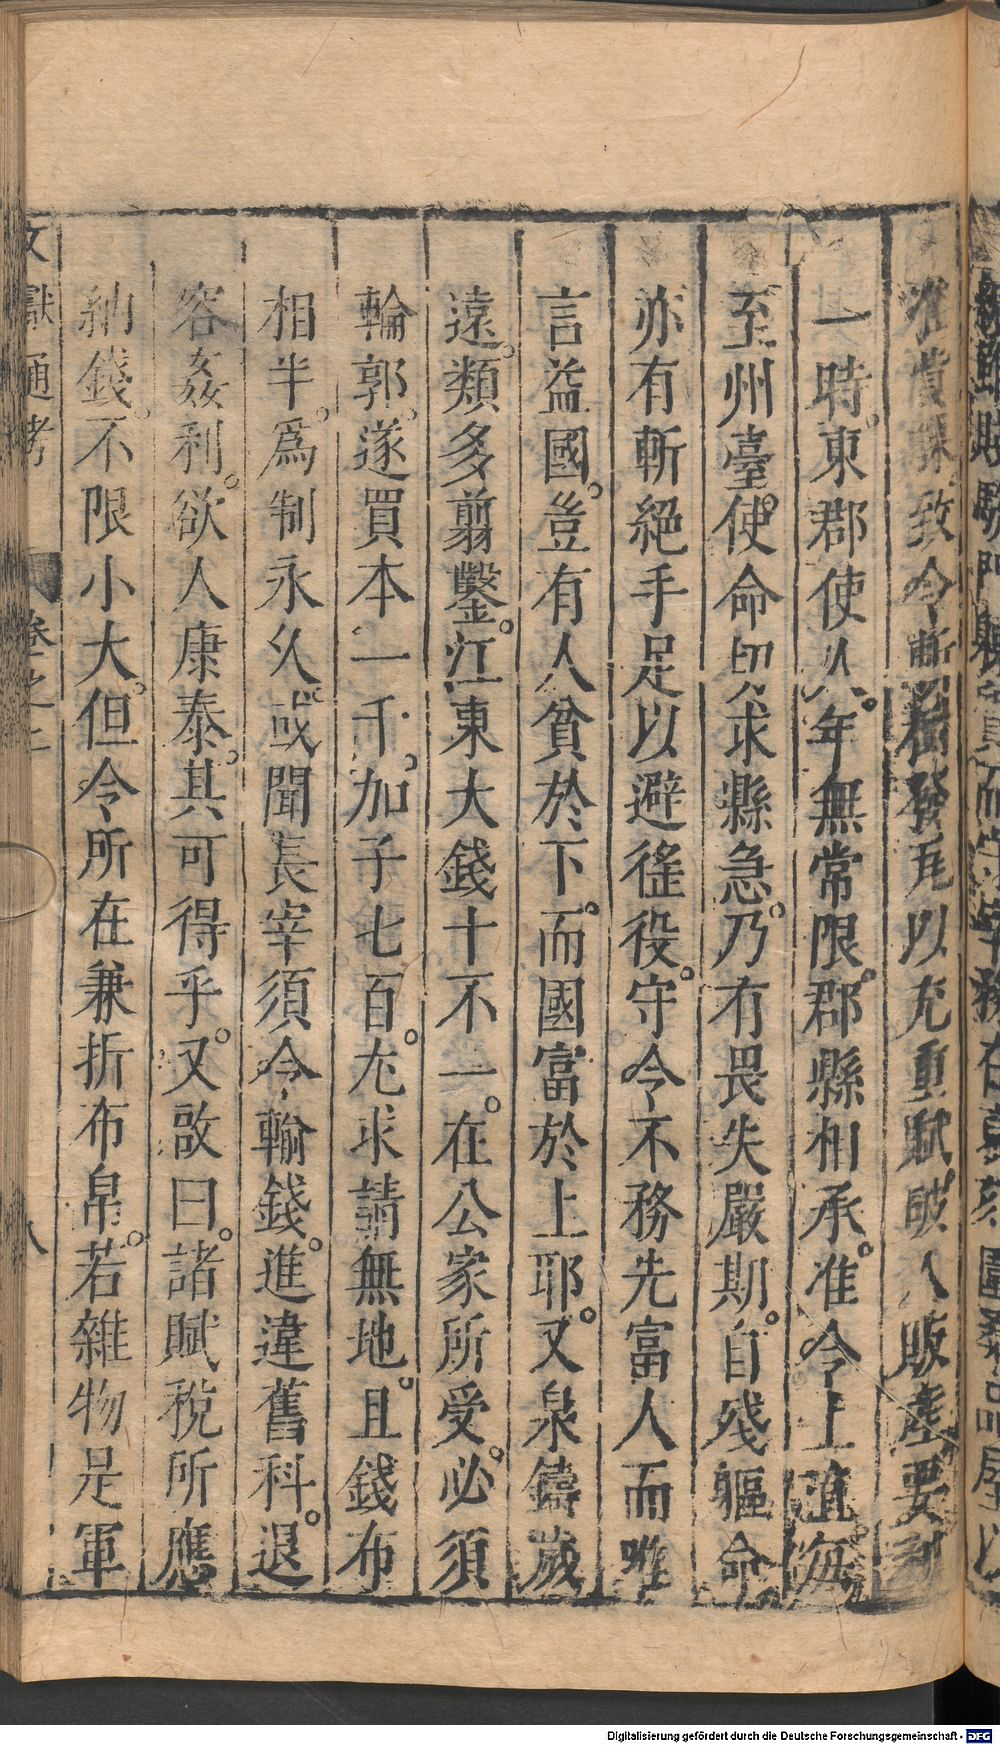 準貲課致令斬樹發瓦以充重賦破人敗產要利
一時東郡使人年無常限郡縣相承准令上直每
至州臺使命切求縣急乃有畏失嚴期自殘軀命
亦有斬絕手足以避徭役守令不務先富人而唯
言益國豈有人貧於下而國富於上耶又泉鑄歲
遠類多翦鑿江東大錢十不一在公家所受必須
輪郭遂買本一千加子七百尤求請無地且錢布
相半爲制永久或聞長宰須令輸錢進違舊科退
容姦利欲人康泰其可得乎又啟曰諸賦稅所應
納錢不限小大但令所在兼折布帛若雜物是軍
文獻通考 卷之二 八
Digitalisierung gefördert durch die Deutsche Forschungsgemeinschaft - DFG